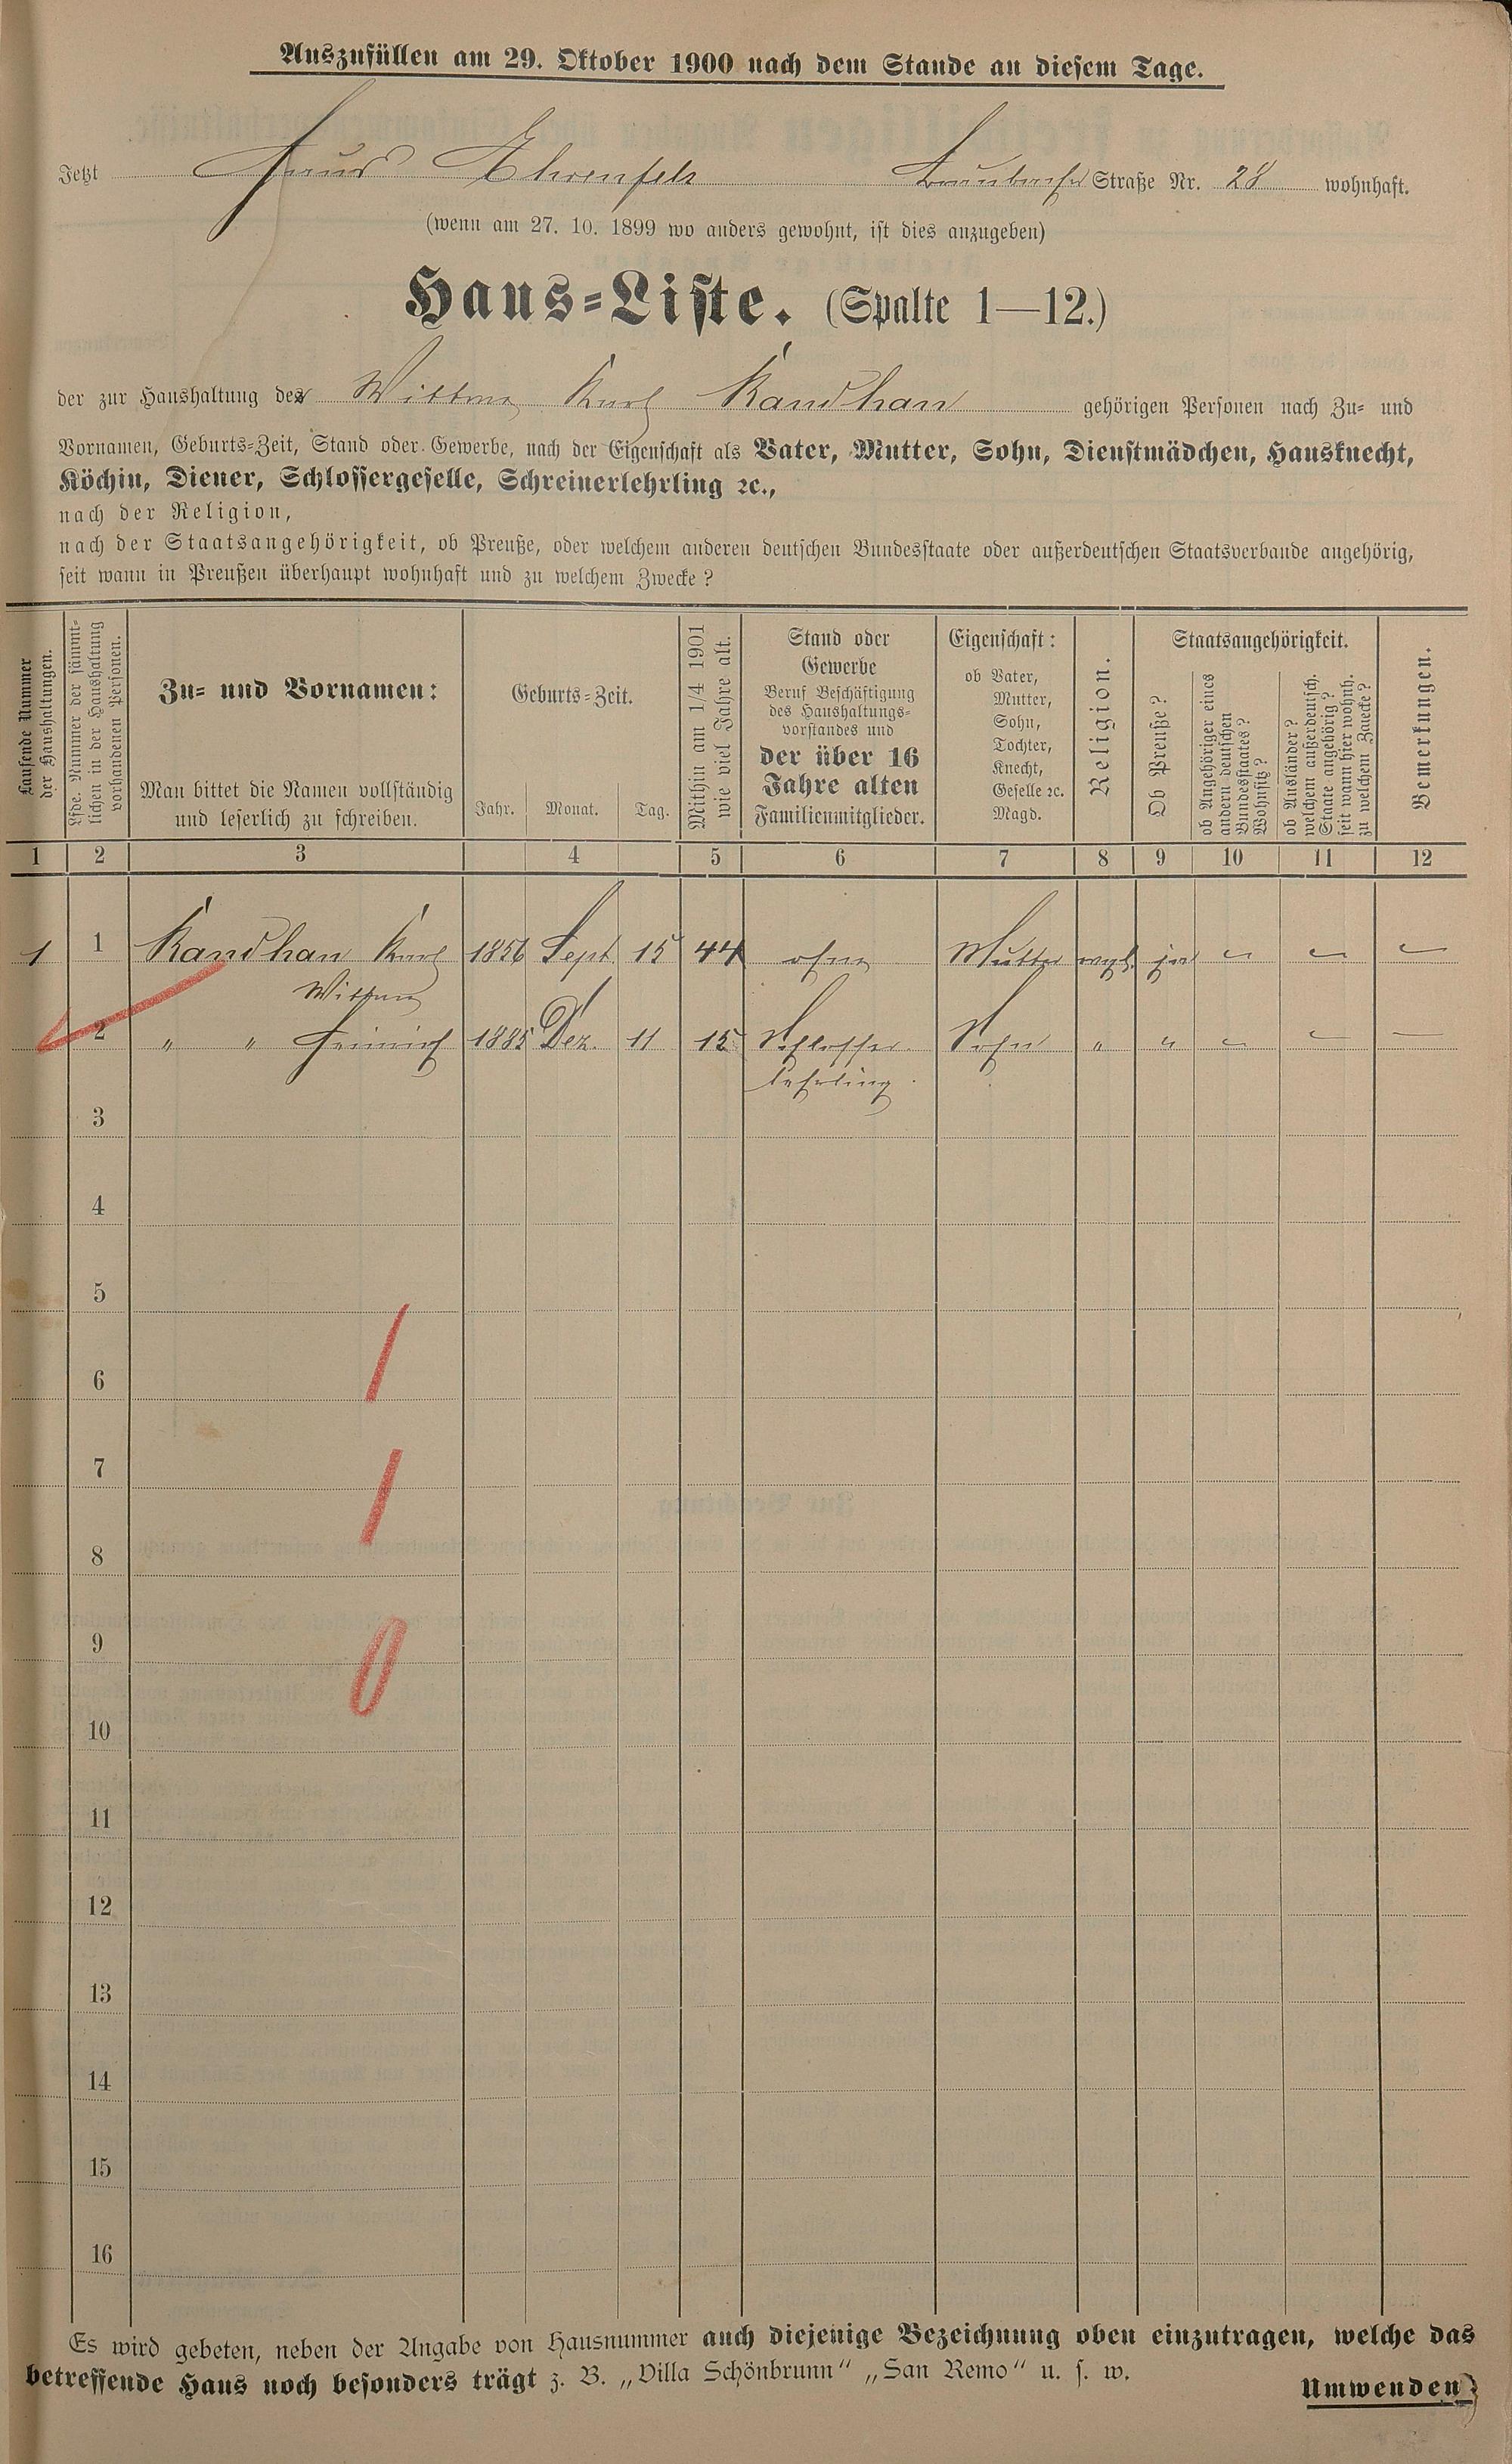 Auszufüllen am 29. Oktober 1900 nach dem Stande an diesem Tage.
Jetzt Haus Ehrenfels Straße Nr. 28 wohnhaft.
(wenn am 27. 10. 1899 wo anders gewohnt, ist dies anzugeben)
Haus-Liste. (Spalte 1—12.)
der zur Haushaltung der Wittwe Karl Kandhan gehörigen Personen nach Zu- und
Vornamen, Geburts-Zeit, Stand oder Gewerbe, nach der Eigenschaft als Vater, Mutter, Sohn, Dienstmädchen, Hausknecht,
Köchin, Diener, Schlossergeselle, Schreinerlehrling ꝛc.,
nach der Religion,
nach der Staatsangehörigkeit, ob Preuße, oder welchem anderen deutschen Bundesstaate oder außerdeutschen Staatsverbande angehörig,
seit wann in Preußen überhaupt wohnhaft und zu welchem Zwecke?
Laufende Nummer
der Haushaltungen.
Lfde. Nummer der sämmt-
lichen in der Haushaltung
vorhandenen Personen.
Zu- und Vornamen:
Man bittet die Namen vollständig
und leserlich zu schreiben.
Geburts-Zeit.
Jahr. Monat. Tag.
Mithin am 1/4 1901
wie viel Jahre alt.
Stand oder
Gewerbe
Beruf Beschäftigung
des Haushaltungs-
vorstandes und
der über 16
Jahre alten
Familienmitglieder.
Eigenschaft:
ob Vater,
Mutter,
Sohn,
Tochter,
Knecht,
Geselle ꝛc.
Magd.
Religion.
Staatsangehörigkeit.
Ob Preuße?
ob Angehöriger eines
andern deutschen
Bundesstaates?
Wohnsitz?
ob Ausländer?
welchem außerdeutsch.
Staate angehörig?
seit wann hier wohnh.
zu welchem Zwecke?
Bemerkungen.
1 2 3 4 5 6 7 8 9 10 11 12
1 1 Kandhan Karl 1856 Sept. 15 44 ohne Mutter evgl. ja
Wittwe
2 " " Heinrich 1885 Dez. 11 15 Schlosser Sohn " "
lehrling
3
4
5
6
7
8
9
10
11
12
13
14
15
16
Es wird gebeten, neben der Angabe von Hausnummer auch diejenige Bezeichnung oben einzutragen, welche das
betreffende Haus noch besonders trägt z. B. „Villa Schönbrunn“ „San Remo“ u. s. w.
Umwenden